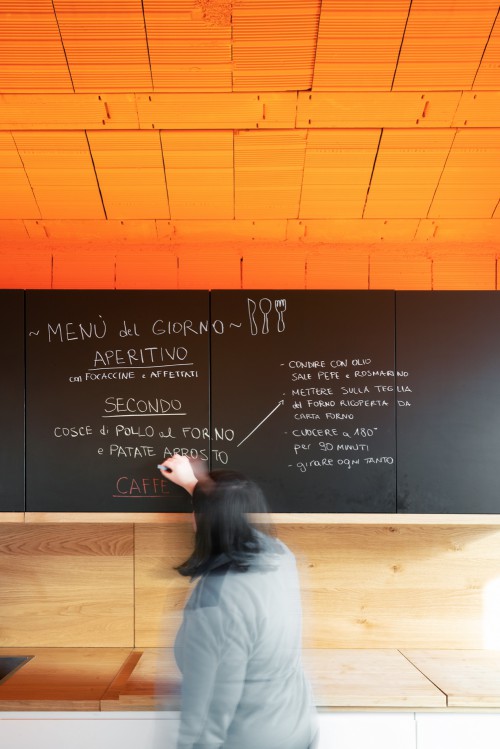 ~ MENÙ del GIORNO ~
APERITIVO
con FOCACCINE e AFFETTATI
SECONDO
COSCE di POLLO al FORNO
e PATATE ARROSTO
CAFFÈ
- CONDIRE CON OLIO
SALE PEPE e ROSMARINO
- METTERE SULLA TEGLIA
del FORNO RICOPERTA DA
CARTA FORNO
- CUOCERE a 180°
per 90 MINUTI
- girare ogni TANTO